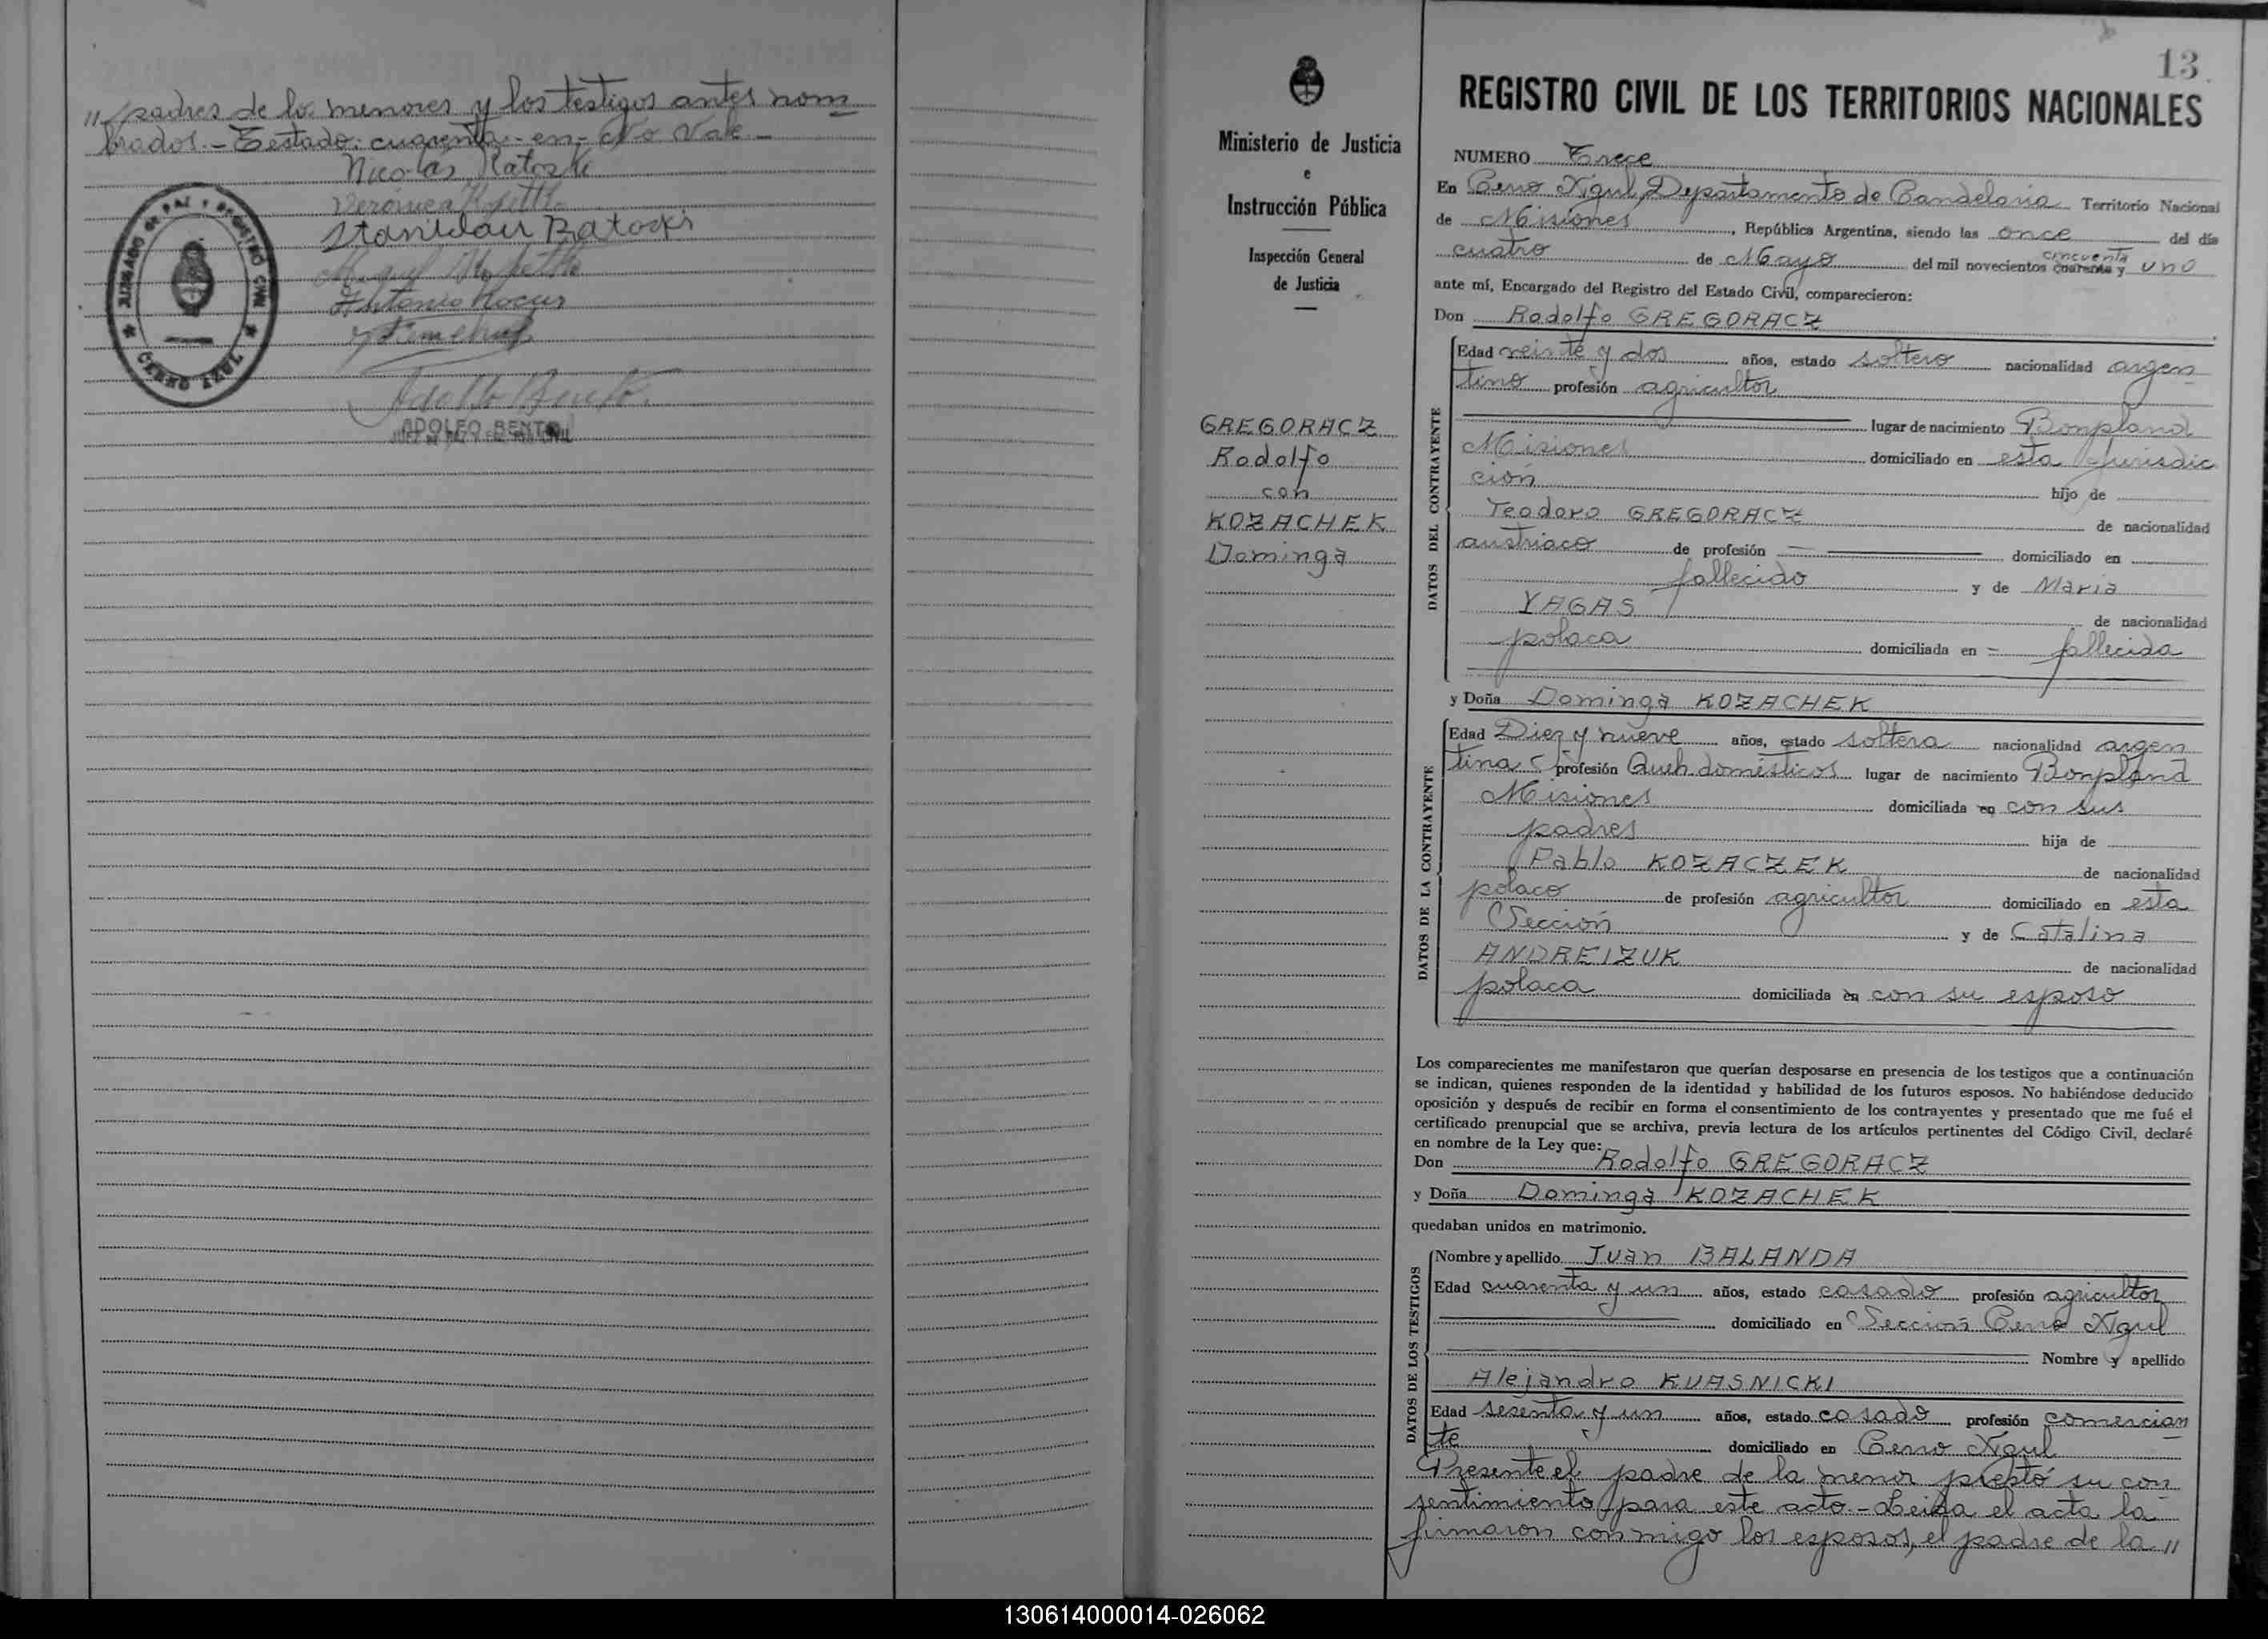 " padres de los menores y los testigos antes nom
brados.- Testado: cuarenta- en- No Vale-
Nicolás Ratoski
Verónica
Stanislau Ratocki
Miguel
Antonio
JUZGADO DE PAZ Y REGISTRO CIVIL
CERRO AZUL
Adolfo Bento
ADOLFO BENTO
JUEZ DE PAZ
13
Ministerio de Justicia
e
Instrucción Pública
Inspección General
de Justicia
GREGORACZ
Rodolfo
con
KOZACHEK
Dominga
REGISTRO CIVIL DE LOS TERRITORIOS NACIONALES
NUMERO Trece
En Cerro Azul, Departamento de Candelaria Territorio Nacional
de Misiones, República Argentina, siendo las once del día
cuatro de Mayo del mil novecientos cuarenta y cincuenta uno
ante mí, Encargado del Registro del Estado Civil, comparecieron:
Don Rodolfo GREGORACZ
DATOS DEL CONTRAYENTE
Edad veinte y dos años, estado soltero nacionalidad argen
tino profesión agricultor
lugar de nacimiento Bonpland
Misiones domiciliado en esta Jurisdic
ción hijo de
Teodoro GREGORACZ de nacionalidad
austriaco de profesión — domiciliado en
fallecido y de Maria
YAGAS de nacionalidad
polaca domiciliada en - fallecida
y Doña Dominga KOZACHEK
DATOS DE LA CONTRAYENTE
Edad Diez y nueve años, estado soltera nacionalidad argen
tina profesión Queh. domésticos lugar de nacimiento Bonpland
Misiones domiciliada en con sus
padres hija de
Pablo KOZACZEK de nacionalidad
polaco de profesión agricultor domiciliado en esta
Sección y de Catalina
ANDREIZUK de nacionalidad
polaca domiciliada en con su esposo
Los comparecientes me manifestaron que querían desposarse en presencia de los testigos que a continuación
se indican, quienes responden de la identidad y habilidad de los futuros esposos. No habiéndose deducido
oposición y después de recibir en forma el consentimiento de los contrayentes y presentado que me fué el
certificado prenupcial que se archiva, previa lectura de los artículos pertinentes del Código Civil, declaré
en nombre de la Ley que:
Don Rodolfo GREGORACZ
y Doña Dominga KOZACHEK
quedaban unidos en matrimonio.
DATOS DE LOS TESTIGOS
Nombre y apellido Juan BALANDA
Edad cuarenta y un años, estado casado profesión agricultor
domiciliado en Sección Cerro Azul
Nombre y apellido
Alejandro KUASNICKI
Edad sesenta y un años, estado casado profesión comercian
te domiciliado en Cerro Azul
Presente el padre de la menor prestó su con
sentimiento para este acto.- Leida el acta la
firmaron conmigo los esposos, el padre de la "
130614000014-026062